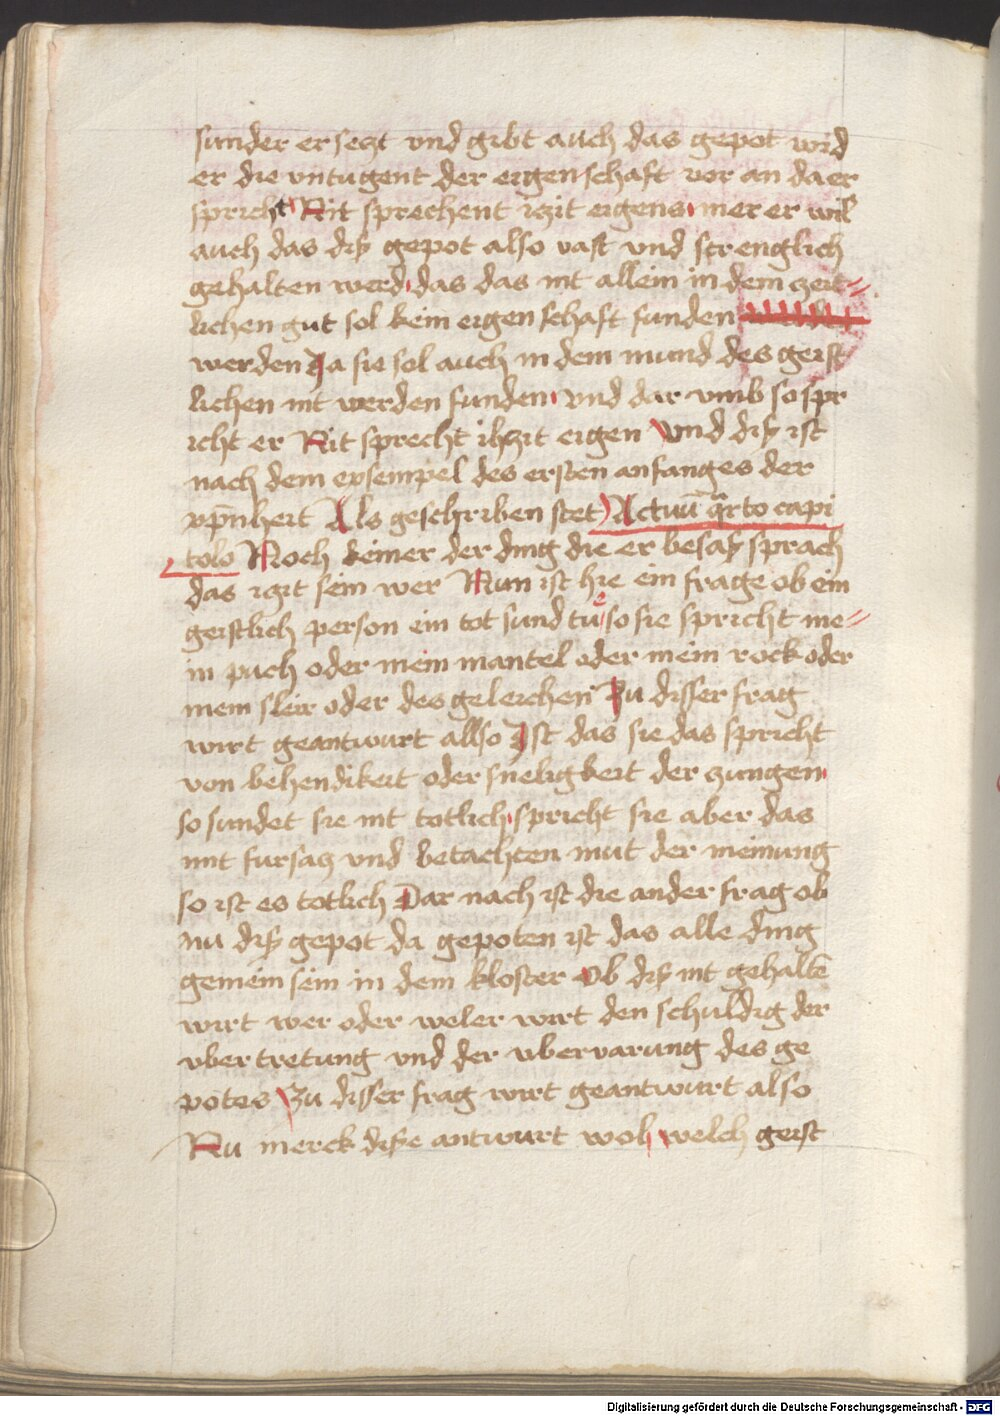 sunder er seczt vnd gibt auch das gepot wid
er die vntugent der eigenschaft vor an da er
spricht Nit sprechent iczit eigens mer er wil
auch das diß gepot also vast vnd strenglich
gehalten werd das das nit allein in dem zeit=
lichen gut sol kein eigenschaft funden
werden Ja sie sol auch in dem mund des geist
lichen nit werden funden vnd dar vmb so spr
icht er Nit sprecht ihzit eigen Vnd diß ist
nach dem exsempel des ersten anfanges der
Als geschriben stet Actuū q̄rto capi
tolo Noch keiner der ding die er besaß sprach
das iczit sein wer Nun ist hie ein frage ob ein
geistlich person ein tot sund tue so sie spricht me=
in puch oder mein mantel oder mein rock oder
mein sleir oder des geleichen Zu disser frag
wirt geantwurt allso Ist das sie das spricht
von behendikeit oder sneligkeit der zungen
so sundet sie nit totlich spricht sie aber das
mit fursacz vnd betachten mut der meinung
so ist es totlich Dar nach ist die ander frag ob
nu diß gepot da gepoten ist das alle ding
gemein sein in dem kloster Ob diß nit gehaltē
wirt wer oder weler wirt den schuldig der
vbertretung vnd der vbervarung des ge
potes Zu disser frag wirt geantwurt also
Nu merck diße antwurt wol welch geist
Digitalisierung gefördert durch die Deutsche Forschungsgemeinschaft - DFG